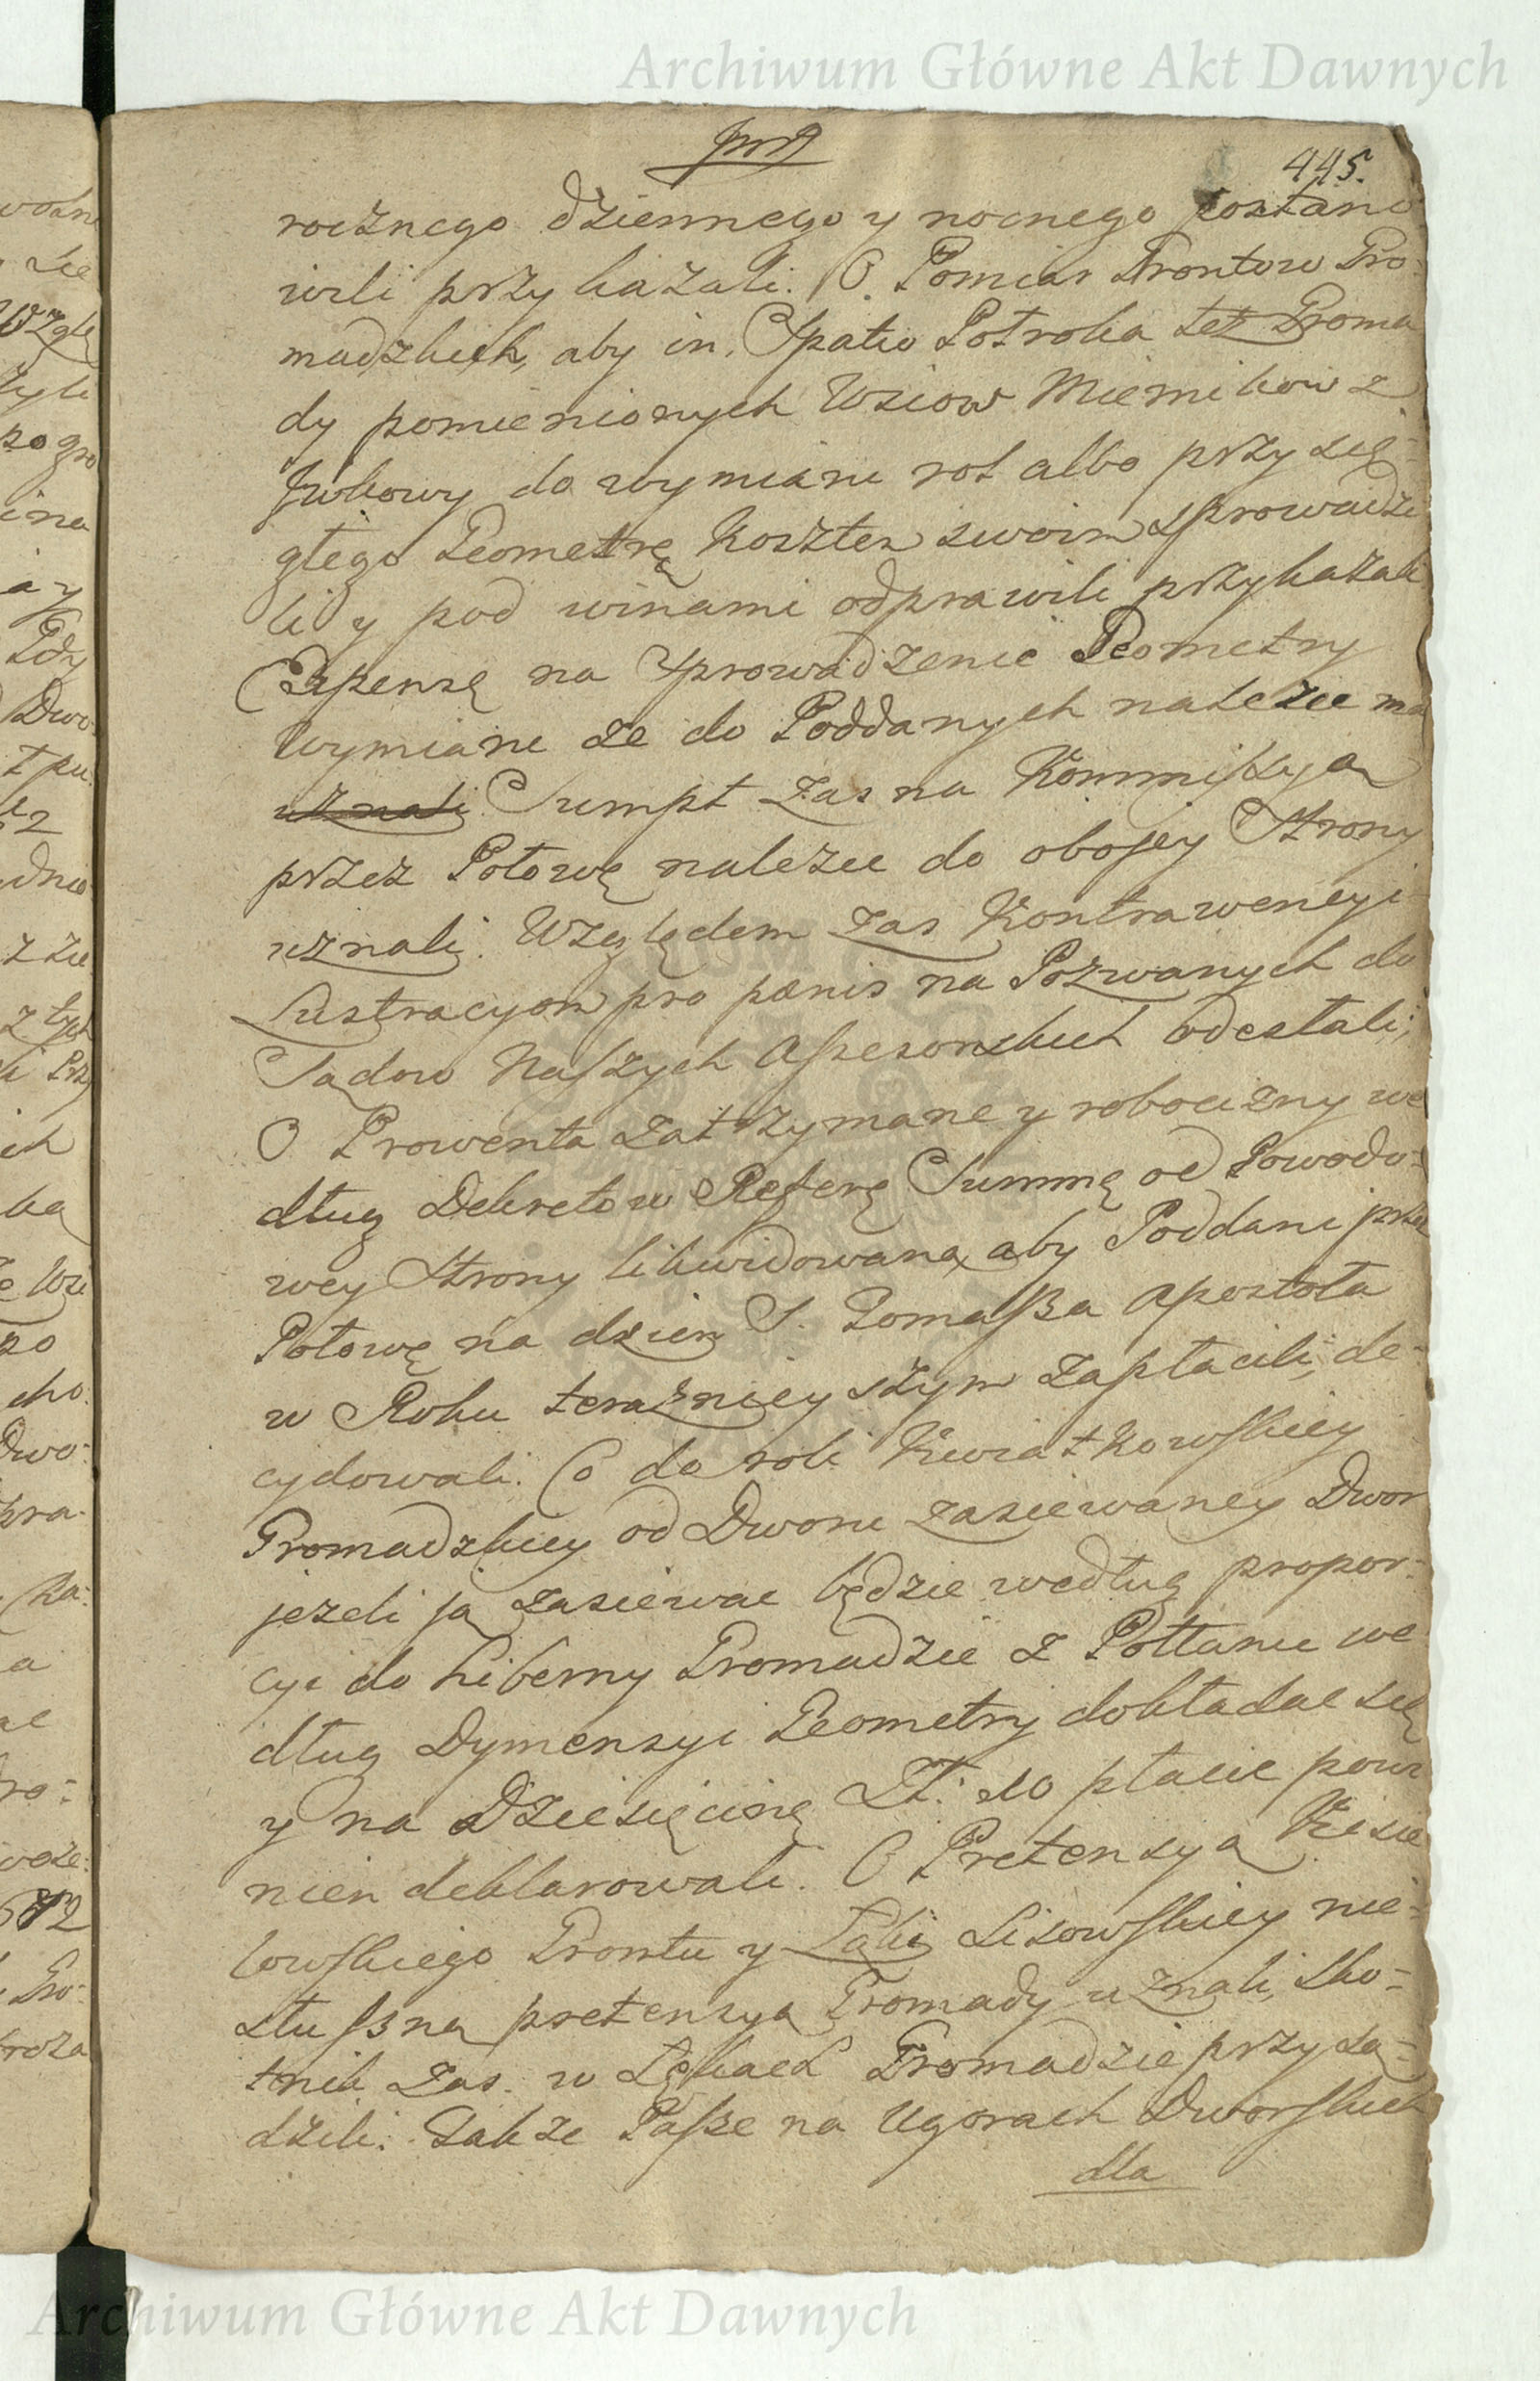 Archiwum Główne Akt Dawnych
445.
rocznego dziennego y nocnego postano
wili przykazali. O. Pomiar Grontow Gro-
madzkich, aby in Spatio Potroka też Groma
dy pomienionych Wsiow Miernikow z
do wymiaru rol albo przysię-
głego Geometrę Kosztem swoim sprowadzi
li y pod winami odprawili przykazali
Expensę na Sprowadzenie Geometry
Wymiaru że do Poddanych należec ma
uznali Sumpt zas na Kommissyą
przez Połowę należec do obojey Strony
uznali. Względem zas Kontrawencyi
Lustracyom pro pænis na Pozwanych do
Sądow Naszych Assesorskich odesłali;
O Prowenta zatrzymane y robocizny we
dług Dekretow Resztę Summę od Powodo-
wey Strony likwidowaną, aby Poddani przez
Połowę na dzien S. Tomasza Apostoła
w Roku teraznieyszym zapłacili, de-
cydowali. Co do roli Kwiatkowskiey
Gromadzkiey od Dworu zasiewaney Dwor
jezeli ją zasiewac będzie według propor-
cyi do hiberny Gromadzie z Połłanu we
dług Dymensyi Geometry dokładac się
y na Dziesięcinę Zł: do płacic powi
nien deklarowali. O Pretensyą
lowskiego Grontu y Łąki Lisowskiey nie-
słuszną pretensyą Gromady uznali, Sko-
tnik zas. w Łękach Gromadzie przysą-
dzili. Takze Pasze na Ugorach Dworskich
dla
Archiwum Główne Akt Dawnych